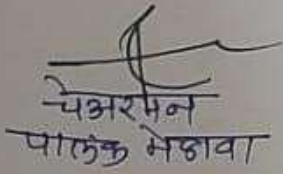 चेअरमन
पालक मेळावा